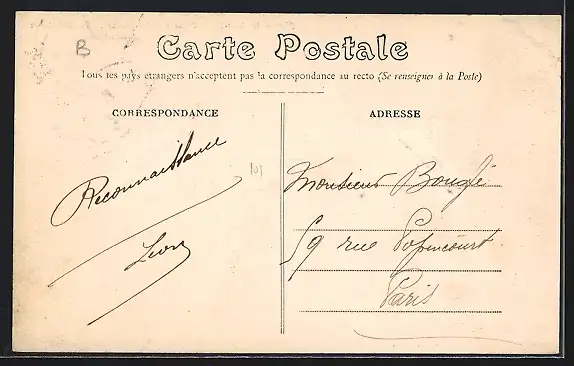 B
Carte Postale
Tous les pays étrangers n'acceptent pas la correspondance au recto (Se renseigner à la Poste)
CORRESPONDANCE
ADRESSE
Reconnaissance
Léon
101
Monsieur Bouglé
59 rue Popincourt
Paris